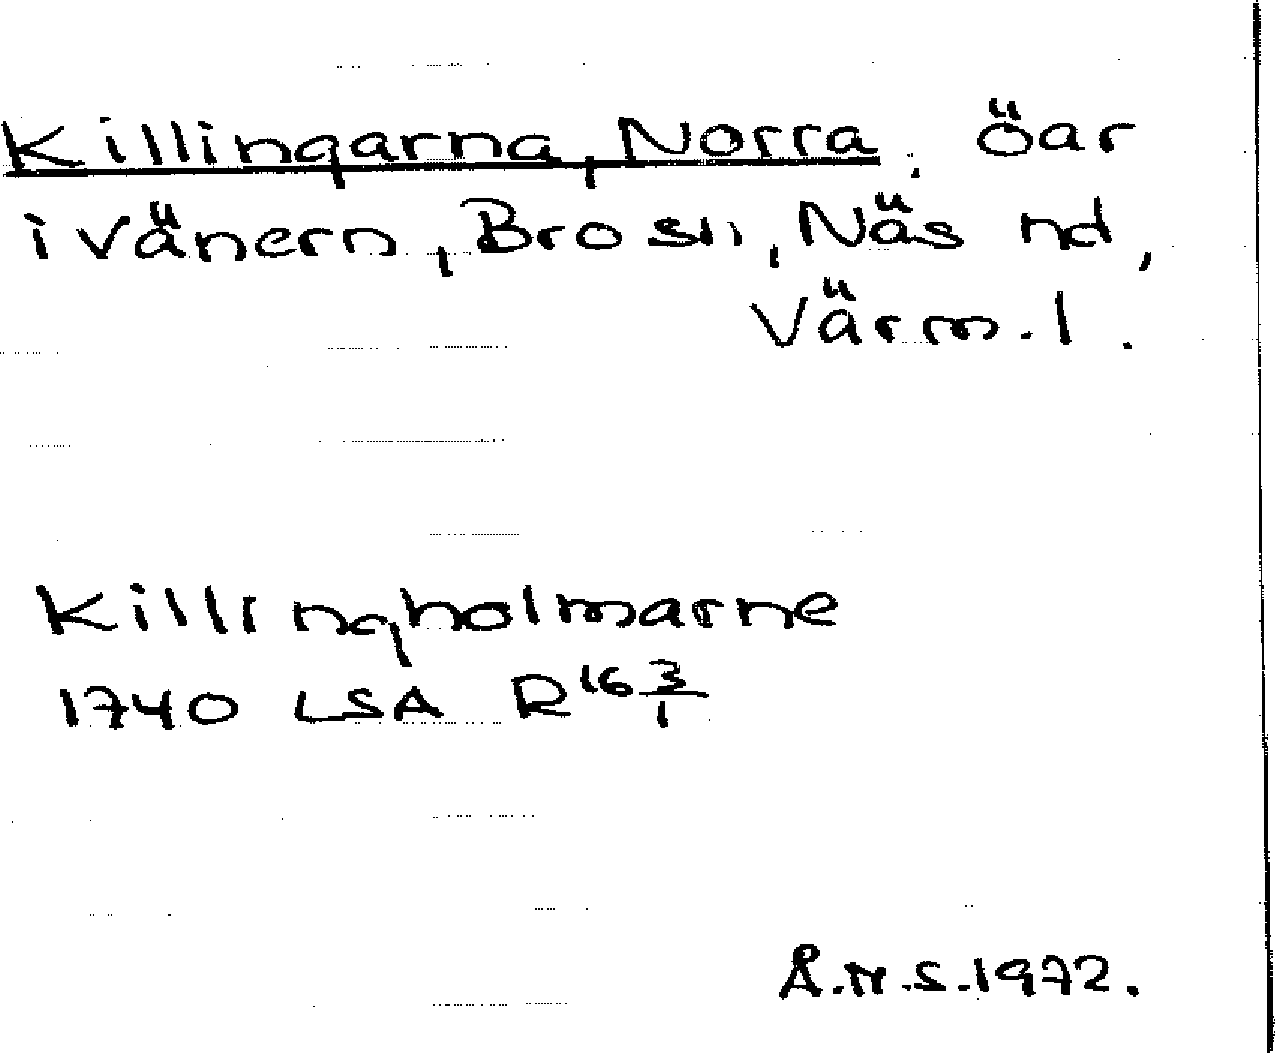 Killingarna, Norra, öar
i Vänern, Bro sn, Näs hd,
Värml.
Killingholmarne
1740 LSA R16 3/1
Å.H.S. 1972.